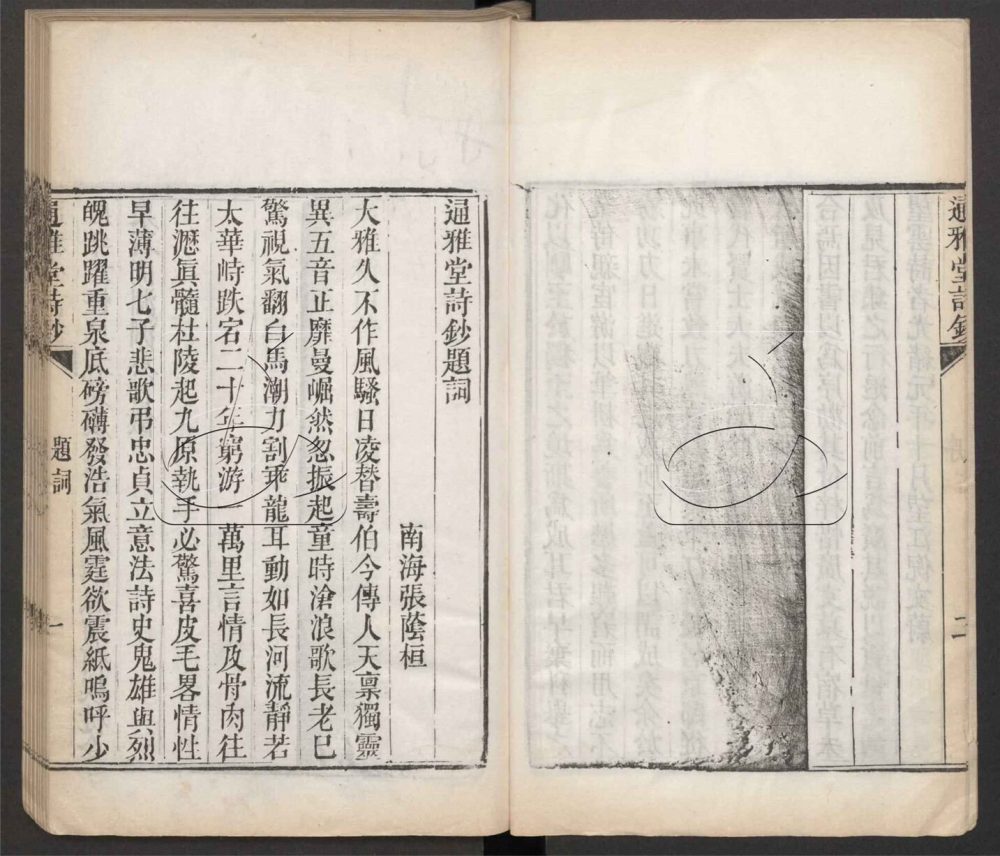 通雅堂詩鈔
二
通雅堂詩鈔題詞
南海張蔭桓
大雅久不作風騷日凌替壽伯今傳人天禀獨靈
異五音正靡曼崛然忽振起童時滄浪歌長老已
驚視氣翻白馬潮力割乘龍耳動如長河流靜若
太華峙跌宕二十年窮游一萬里言情及骨肉往
往瀝眞髓杜陵起九原執手必驚喜皮毛畧情性
早薄明七子悲歌弔忠貞立意法詩史鬼雄與烈
魄跳躍重泉底磅礴發浩氣風霆欲震紙嗚呼少
通雅堂詩鈔
題詞
一